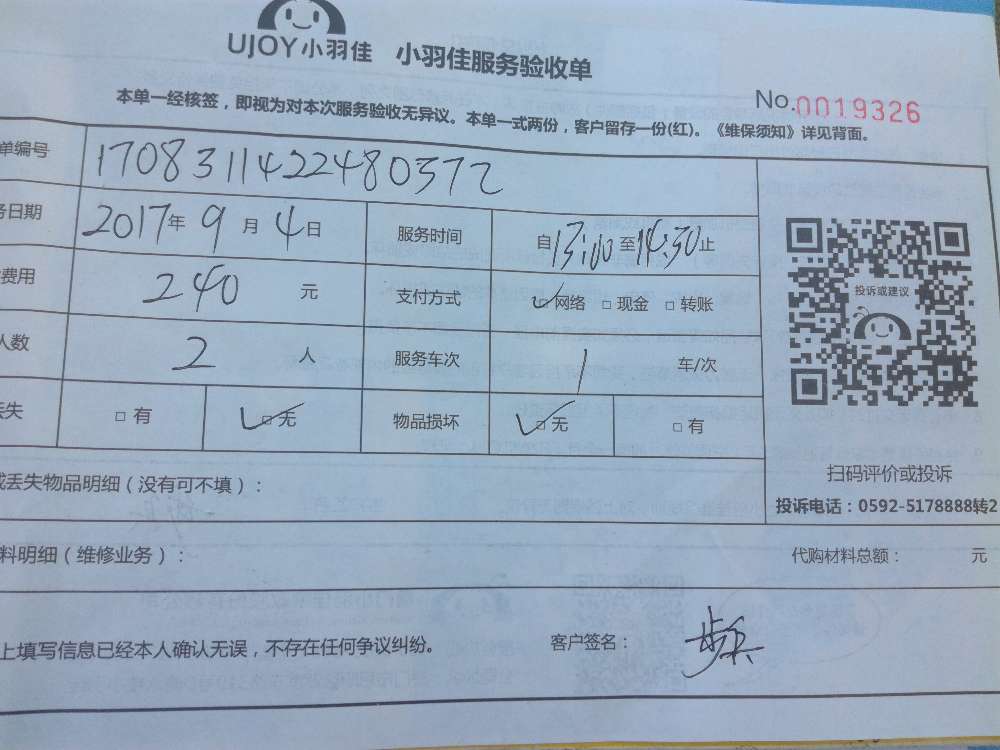 UJOY小羽佳 小羽佳服务验收单
No.0019326
本单一经核签，即视为对本次服务验收无异议。本单一式两份，客户留存一份(红)。《维保须知》详见背面。
单编号 17083114224480372
务日期 2017年9月4日 服务时间 自13:00至14:30止
费用 240 元 支付方式 网络 □现金 □转账
人数 2 人 服务车次 1 车/次
丢失 □有 无 物品损坏 无 □有
投诉或建议
扫码评价或投诉
投诉电话：0592-5178888转2
或丢失物品明细（没有可不填）：
料明细（维修业务）： 代购材料总额： 元
上填写信息已经本人确认无误，不存在任何争议纠纷。 客户签名：